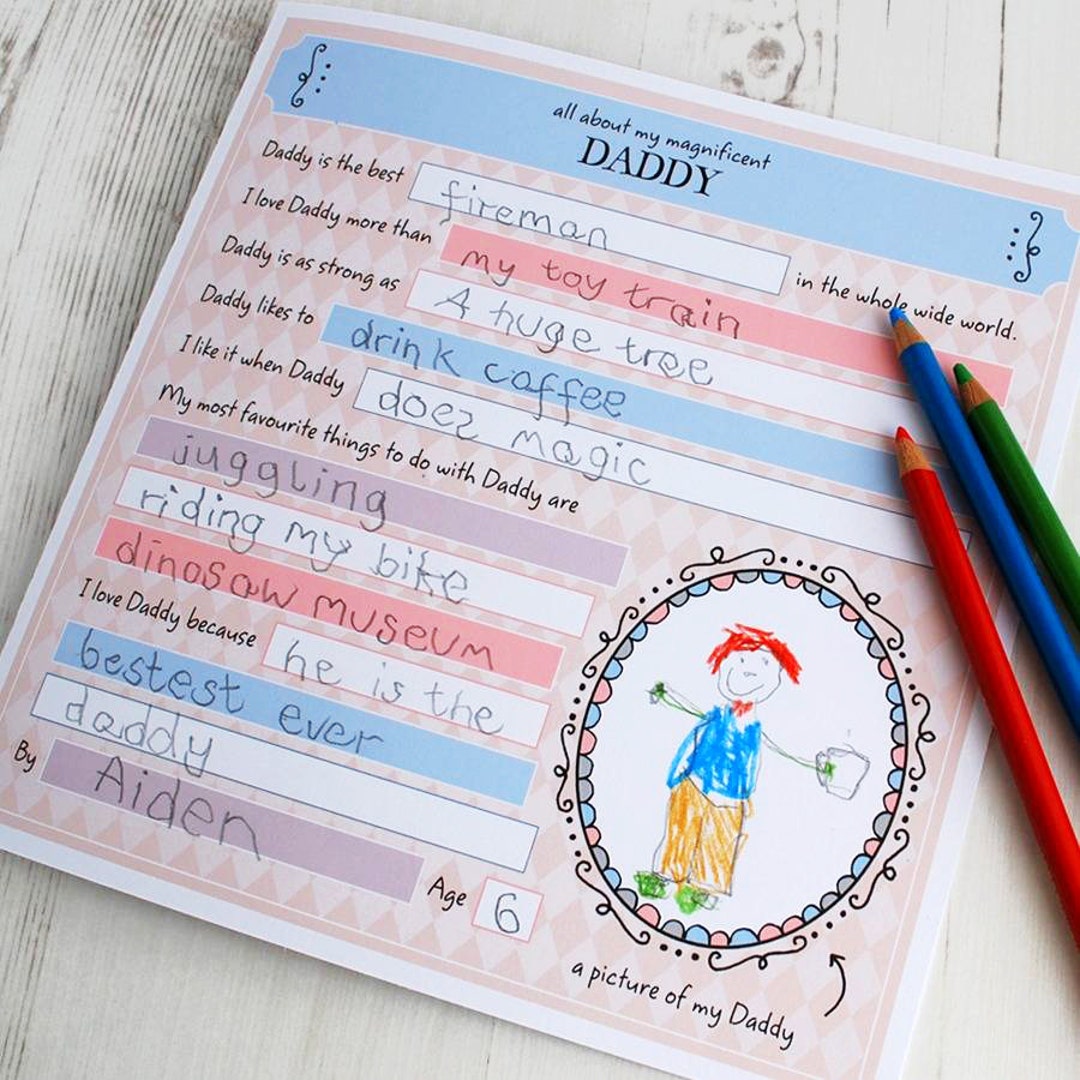 all about my magnificent
DADDY
Daddy is the best fireman in the whole wide world.
I love Daddy more than my toy train
Daddy is as strong as A huge tree
Daddy likes to drink coffee
I like it when Daddy does magic
My most favourite things to do with Daddy are
juggling
riding my bike
dinosaw museum
I love Daddy because he is the
bestest ever
daddy
By Aiden Age 6
a picture of my Daddy